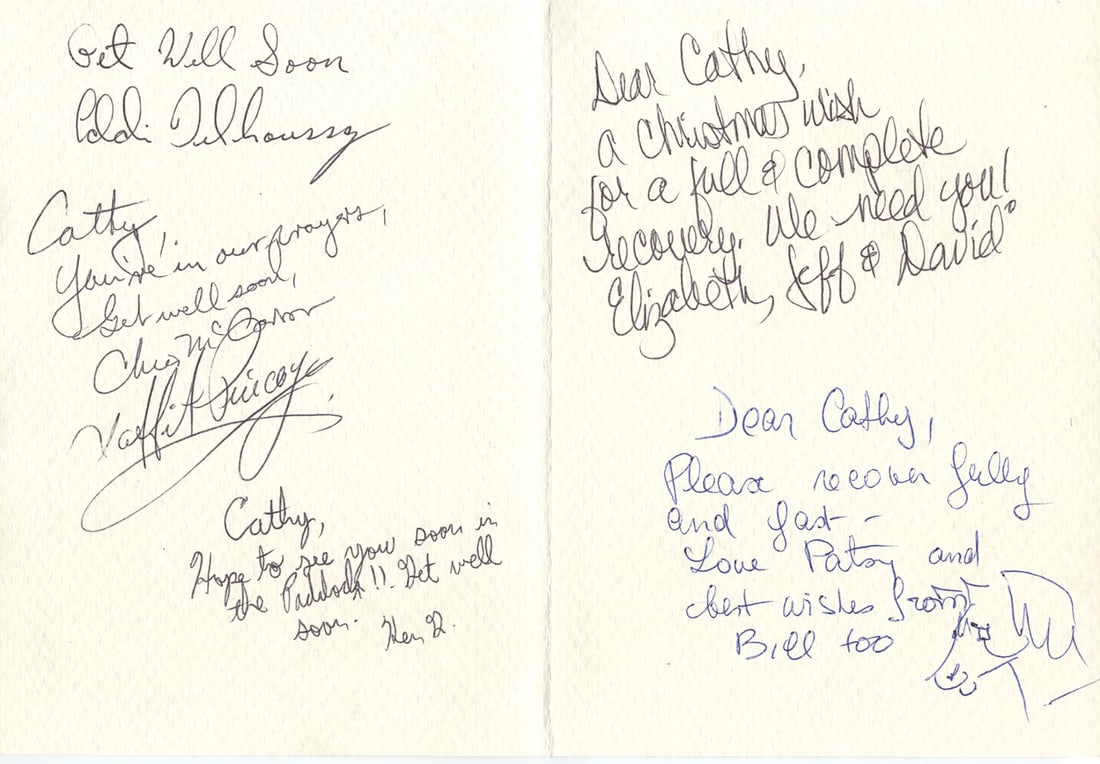 Get Well Soon
Eddie Delhoussay
Cathy,
You're in our prayers,
Get well soon,
Chris McCarron
Laffit Pincay Jr.
Cathy,
Hope to see you soon in
the Paddock!! Get well
soon.
Dear Cathy,
a Christmas wish
for a full & complete
recovery. We need you!
Elizabeth, Jeff & David
Dear Cathy,
Please recover fully
and fast -
Love Patsy and
best wishes from
Bill too